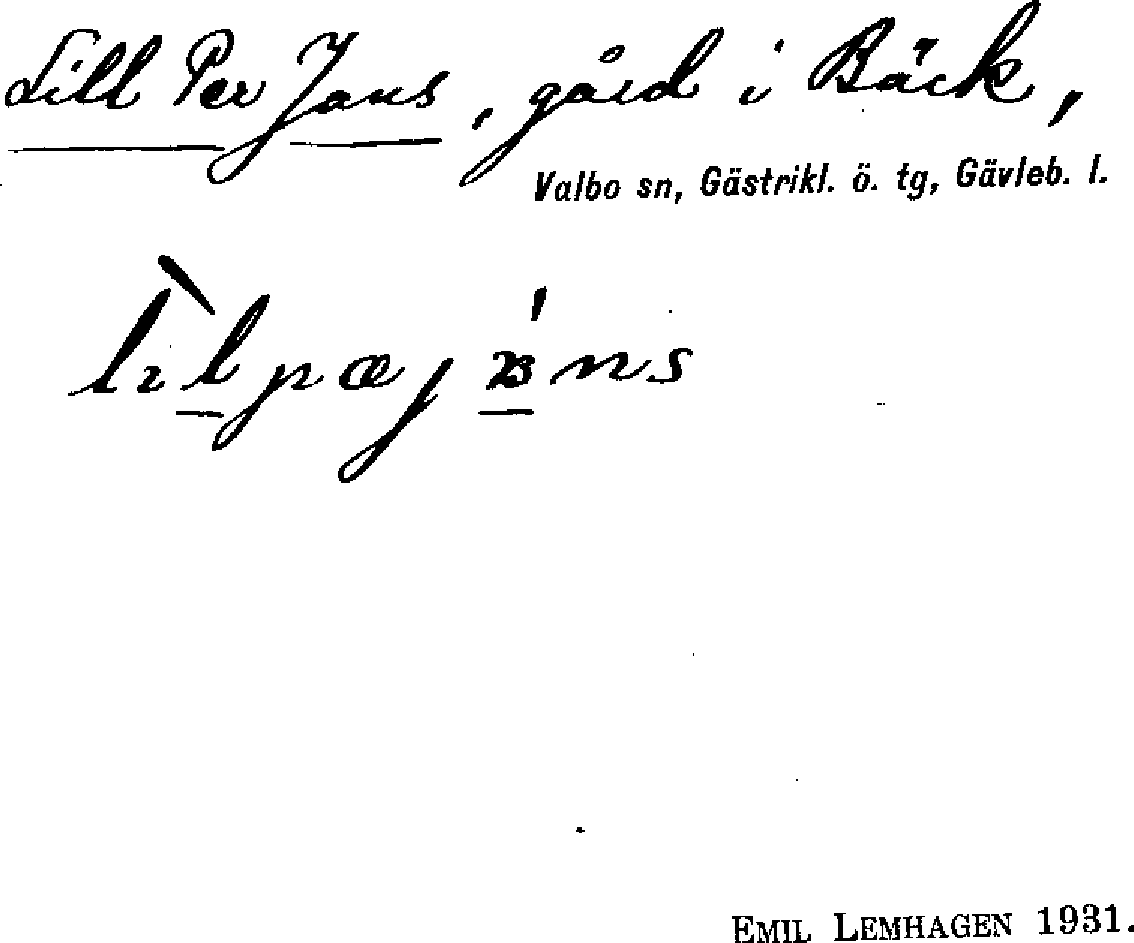 Lill Per Jans, gård i Bäck,
Valbo sn, Gästrikl. ö. tg, Gävleb. l.
EMIL LEMHAGEN 1931.